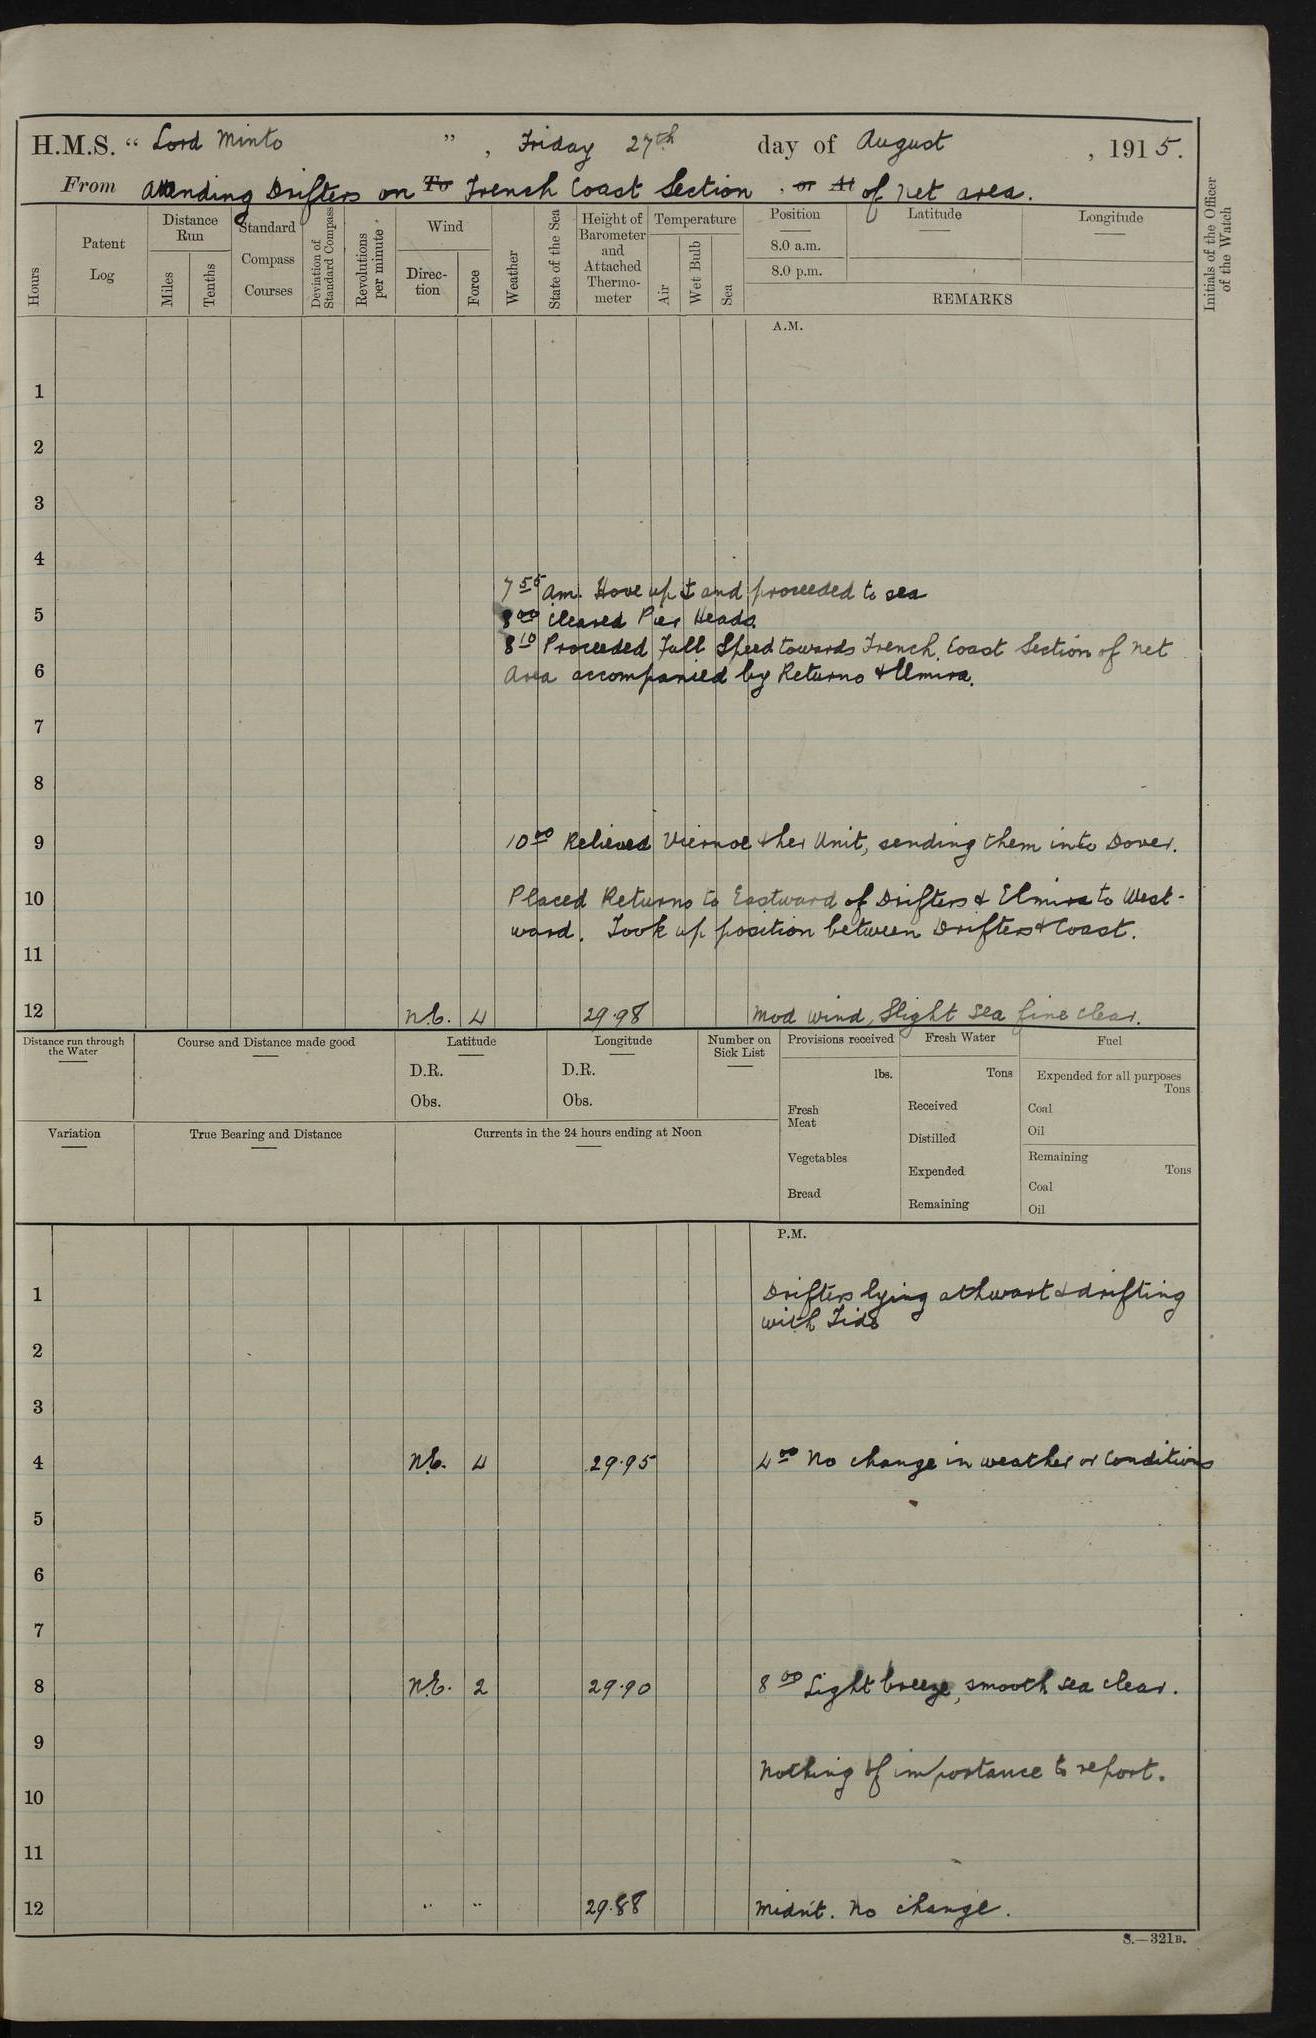 H.M.S. “ Lord Minto ” , Friday 27th day of August , 1915.
From Attending Drifters on To French Coast Section . or At of net area.
Hours
Patent Log
Distance Run
Miles
Tenths
Standard Compass Courses
Deviation of Standard Compass
Revolutions per minute
Wind
Direc-tion
Force
Weather
State of the Sea
Height of Barometer and Attached Thermo-meter
Temperature
Air
Wet Bulb
Sea
Position
8.0 a.m.
8.0 p.m.
Latitude
Longitude
REMARKS
Initials of the Officer of the Watch
A.M.
1
2
3
4
7 55 am. Hove up ⚓ and proceeded to sea
5
8 00 cleared Pier Heads.
8 10 Proceeded Full Speed towards French Coast Section of net
6
Area accompanied by Returno & Elmira.
7
8
9
10 00 Relieved & her Unit, sending them into Dover.
10
Placed Returno to Eastward of Drifters & Elmira to West-
ward. Took up position between Drifters & Coast.
11
12 N.E. 4 29.98 Mod wind, Slight sea fine clear.
Distance run through the Water
Course and Distance made good
Latitude
D.R.
Obs.
Longitude
D.R.
Obs.
Number on Sick List
Provisions received
lbs.
Fresh Meat
Vegetables
Bread
Fresh Water
Tons
Received
Distilled
Expended
Remaining
Fuel
Expended for all purposes
Tons
Coal
Oil
Remaining
Tons
Coal
Oil
Variation
True Bearing and Distance
Currents in the 24 hours ending at Noon
P.M.
1 Drifters lying athwart & drifting
with Tide
2
3
4 N.E. 4 29.95 4 00 No change in weather or Conditions
5
6
7
8 N.E. 2 29.90 8 00 Light breeze, smooth sea clear.
9
Nothing of importance to report.
10
11
12 " " 29.88 Midn't. No change.
S.—321B.